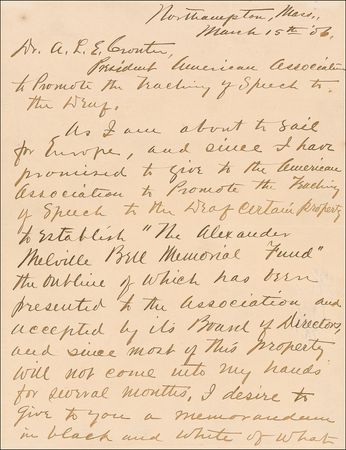 Northampton, Mass.,
March 15th '06.
Dr. A. L. E. Crouter,
President American Association
to Promote the Teaching of Speech to
the Deaf.
As I am about to sail
for Europe, and since I have
promised to give to the American
Association to Promote the Teaching
of Speech to the Deaf certain property
to establish "The Alexander
Melville Bell Memorial Fund"
the outline of which has been
presented to the Association and
accepted by its Board of Directors,
and since most of this property
will not come into my hands
for several months, I desire to
give to you a memorandum
in black and white of what